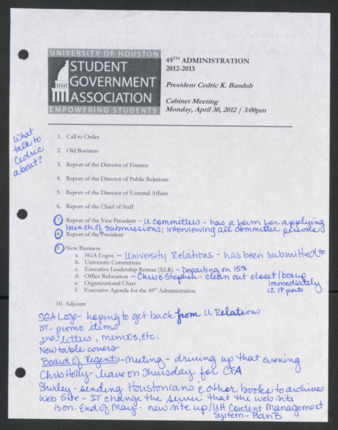 UNIVERSITY OF HOUSTON
STUDENT
GOVERNMENT
ASSOCIATION
EMPOWERING STUDENTS
49TH ADMINISTRATION
2012-2013
President Cedric K. Bandoh
Cabinet Meeting
Monday, April 30, 2012 / 3:00pm
What
talk to
Cedric
about?
1. Call to Order
2. Old Business
3. Report of the Director of Finance
4. Report of the Director of Public Relations
5. Report of the Director of External Affairs
6. Report of the Chief of Staff
7. Report of the Vice President - U committees - has a form for applying
bunch of submissions; interviewing all committee
8. Report of the President
9. New Business
a. SGA Logos - University Relations - has been submitted to
b. University Committees
c. Executive Leadership Retreat (XLR) - Departing on
d. Office Relocation - Chase Stephen - clean out closet/boxup
immediately
e. Organizational Chart
12 IP ports
f. Executive Agenda for the 49th Administration
10. Adjourn
SGA Logo - hoping to get back from U Relation
1st - promo items
2nd letters, memos, etc.
New table covers
Board of Regents - Meeting - driving up that evening
Chris Holly - leave on Thursday for CFA
Shirley - sending Houstonians & other books to archives
Web Site - IT change the server that the web sits
is on. End of May - new site up/UH Content Management
System -